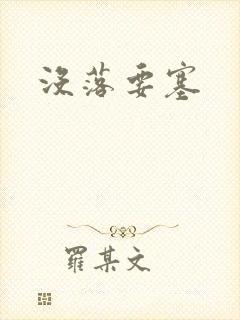 没落要塞
羅某文